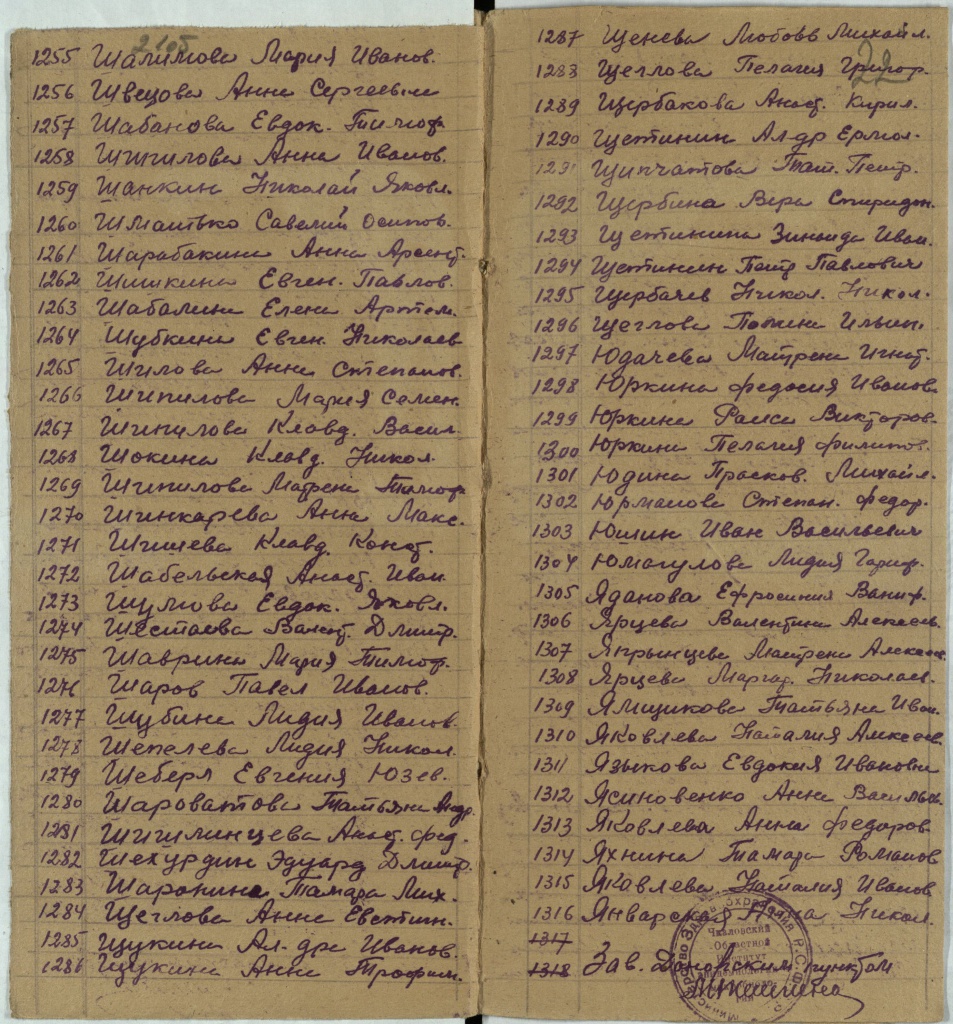 2105
1255 Шалимова Мария Иванов.
1256 Швецова Анна Сергеевын
1257 Шабанова Евдок. Тимоф.
1258 Шипилова Анна Иванов.
1259 Шанкин Николай Яковл.
1260 Шматько Савелий Осипов.
1261 Шарабакина Анна Арсент.
1262 Шишкина Евген. Павлов.
1263 Шабалина Елена Артем.
1264 Шубкина Евген. Николаев
1265 Шилова Анна Степанов.
1266 Шипилова Мария Семен.
1267 Шипилова Клавд. Васил.
1268 Шокина Клавд. Никол.
1269 Шипилова Матрена Тимоф.
1270 Шинкарева Анна Макс.
1271 Шишева Клавд. Конст.
1272 Шабельская Анаст. Иван.
1273 Шумова Евдок. Яковл.
1274 Шестаева Валент. Дмитр.
1275 Шаврина Мария Тимоф.
1276 Шаров Павел Иванов.
1277 Шубина Лидия Иванов.
1278 Шепелева Лидия Никол.
1279 Шеберл Евгения Юзев.
1280 Шароватова Татьяна Андр.
1281 Шигилинцева Анаст. Фед.
1282 Шехурдин Эдуард Дмитр.
1283 Шаронина Тамара Мих.
1284 Щеглова Анна Евстин.
1285 Щукина Ал-дра Иванов.
1286 Щукина Анна Трофим.
22
1287 Щенева Любовь Михайл.
1283 Щеглова Пелагия Григор.
1289 Щербакова Анаст. Кирил.
1290 Щетинин Ал-др Ермол.
1291 Щипчатова Тат. Петр.
1292 Щербина Вера Спиридон.
1293 Щетинина Зинаида Иван.
1294 Щетинин Петр Павлович
1295 Щербачев Никол. Никол.
1296 Щеглова Полина Ильин.
1297 Юдачева Матрена Игнат.
1298 Юркина Федосия Иванов.
1299 Юркина Раиса Викторов.
1300 Юркина Пелагия Филипов.
1301 Юдина Прасков. Михайл.
1302 Юрманова Степан. Федор.
1303 Юшин Иван Васильевич
1304 Юмагулова Лидия Гариф.
1305 Яданова Ефросиния Ваниф.
1306 Ярцева Валентина Алексеев.
1307 Ягрынцева Матрена Алексеев.
1308 Ярцева Маргар. Николаев.
1309 Ямщикова Татьяна Иван.
1310 Яковлева Наталия Алексеев.
1311 Языкова Евдокия Ивановна
1312 Ясиновенко Анна Васильев.
1313 Яковлева Анна Федоров.
1314 Яхнина Тамара Романов
1315 Яковлева Наталия Иванов
1316 Январская Нина Никол.
1317
1318 Зав. Донорским пунктом
Чкаловский
Областной
Институт